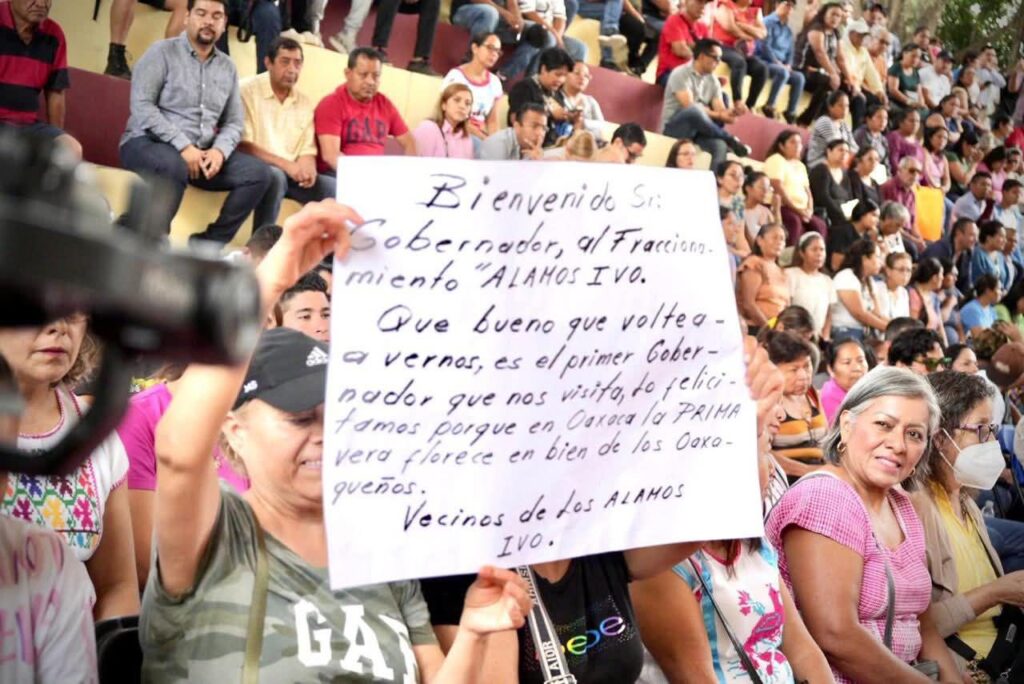 Bienvenido Sr:
Gobernador, al Fracciona-
miento "ALAMOS IVO.
Que bueno que voltea-
a vernos, es el primer Gober-
nador que nos visita, lo felici-
tamos porque en Oaxaca la PRIMA
vera florece en bien de los Oaxa-
queños.
Vecinos de Los ALAMOS
IVO.
GAP
GAP